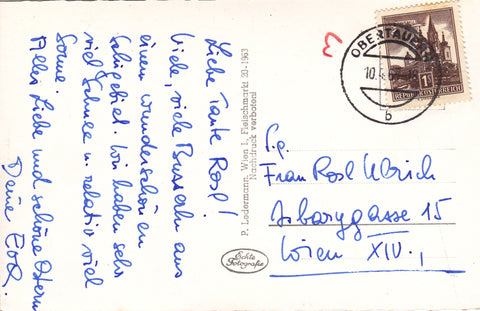 Liebe Tante Rosl!
Viele, viele Busserln aus
einem wunderschönen
Schigebiet. Wir haben sehr
viel Schnee u. relativ viel
Sonne.
Alles Liebe und schöne Ostern
Deine
P. Ledermann, Wien I, Fleischmarkt 20 - 1963
Nachdruck verboten!
Echte
Fotografie
OBERTAUERN
10.
b
REPUBLIK ÖSTERREICH
Frau Rosl Ulrich
Isbarygasse 15
Wien XIV.,